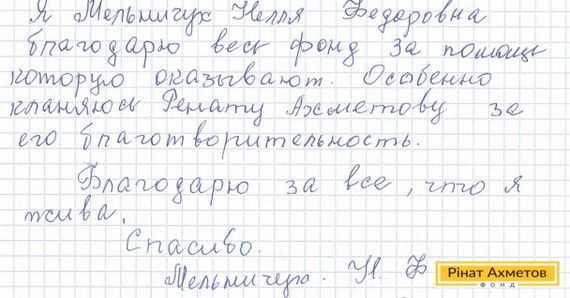 Я Мельничук Нелля Федоровна
благодарю весь фонд за помощь
которую оказывают. Особенно
кланяюсь Ренату Ахметову за
его благотворительность.
Благодарю за все, что я
жива.
Спасибо.
Мельничук. Н. Ф
Рінат Ахметов
ФОНД